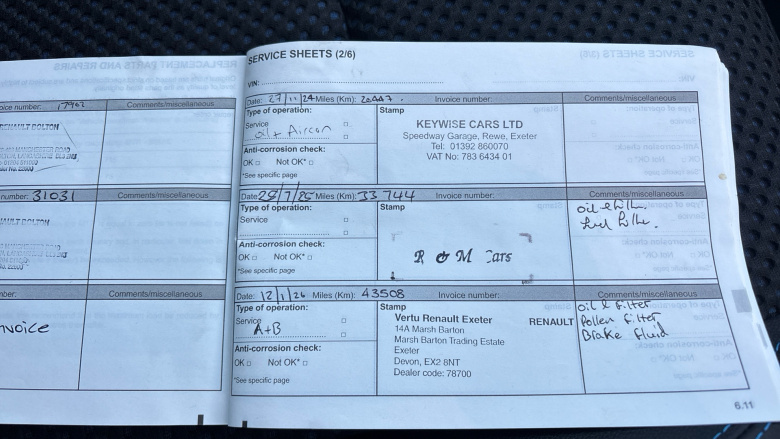 SERVICE SHEETS (2/6)
VIN:
Date: 27/11/24 Miles (Km): 20447. Invoice number: Comments/miscellaneous
Type of operation:
Service
oil + Aircon
Anti-corrosion check:
OK Not OK*
*See specific page
Stamp
KEYWISE CARS LTD
Speedway Garage, Rewe, Exeter
Tel: 01392 860070
VAT No: 783 6434 01
Date: 28/7/25 Miles (Km): 33744 Invoice number: Comments/miscellaneous
Type of operation:
Service
Anti-corrosion check:
OK Not OK*
*See specific page
Stamp
R & M Cars
oil &
Date: 12/1/26 Miles (Km): 43508 Invoice number: Comments/miscellaneous
Type of operation:
Service
A+B
Anti-corrosion check:
OK Not OK*
*See specific page
Stamp
Vertu Renault Exeter RENAULT
14A Marsh Barton
Marsh Barton Trading Estate
Exeter
Devon, EX2 8NT
Dealer code: 78700
oil & filter
Pollen filter
Brake fluid
6.11
number: Comments/miscellaneous
RENAULT BOLTON
number: 31031 Comments/miscellaneous
AULT BOLTON
ber: Comments/miscellaneous
nvoice